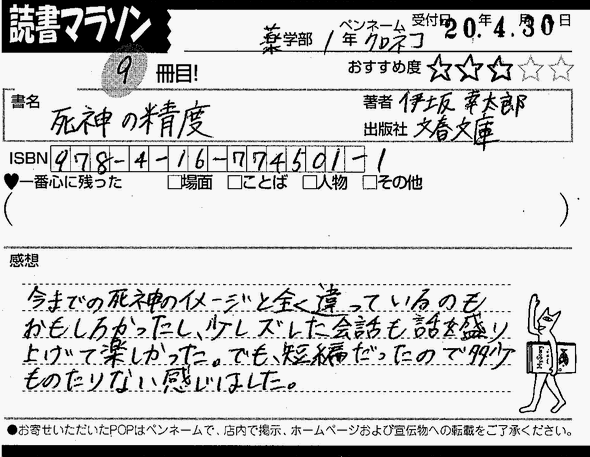 読書マラソン
薬学部 1年 ペンネーム クロネコ 受付日 20.年4.月30日
9 冊目!
おすすめ度 ★★★☆☆
書名 死神の精度
著者 伊坂 幸太郎
出版社 文春文庫
ISBN 978-4-16-774501-1
♥一番心に残った □場面 □ことば □人物 □その他
( )
感想
今までの死神のイメージと全く違っているのも
おもしろかったし、少しズレした会話も話を盛り
上げて楽しかった。でも、短編だったので多少
ものたりない感じはした。
●お寄せいただいたPOPはペンネームで、店内で掲示、ホームページおよび宣伝物への転載をご了承ください。